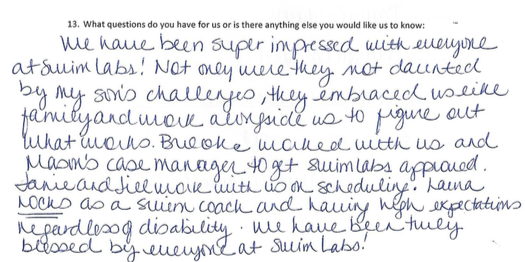 13. What questions do you have for us or is there anything else you would like us to know:
We have been super impressed with everyone
at Swim Labs! Not only were they not daunted
by my son's challenges, they embraced us like
family and work alongside us to figure out
what works. Brooke worked with us and
Mason's case manager to get Swimlabs approved.
Janie and Jill work with us on scheduling. Laura
ROCKS as a swim coach and having high expectations
regardless of disability. We have been truly
blessed by everyone at Swim Labs!